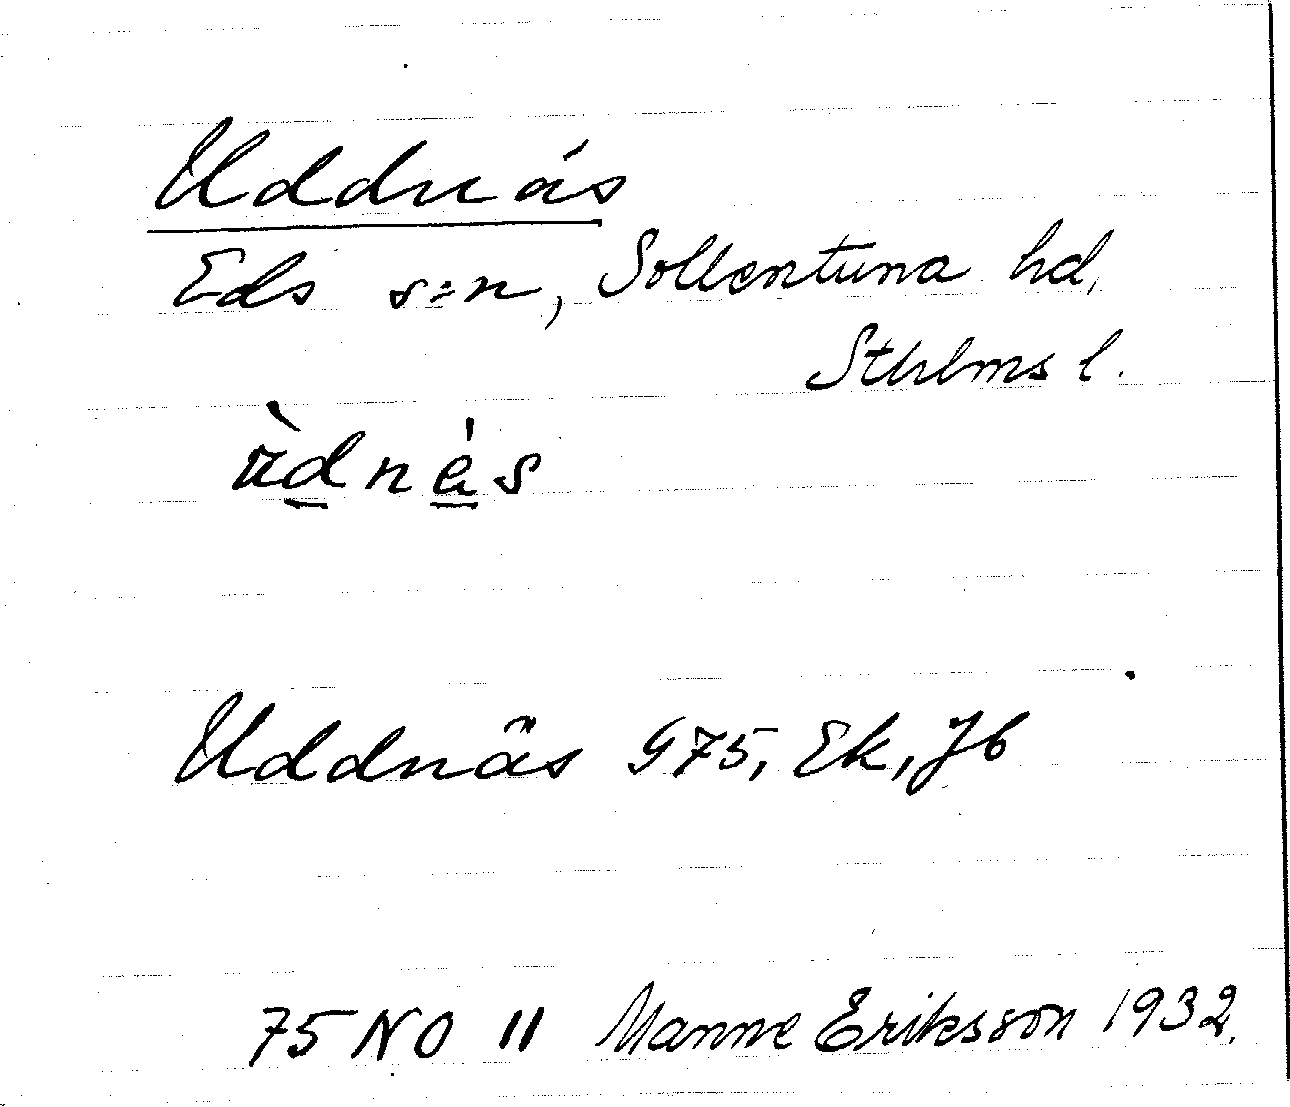 Uddnäs
Eds s:n, Sollentuna hd,
Sthlms l.
Uddnäs G75, Ek, Jb
75 NO 11 Manne Eriksson 1932.